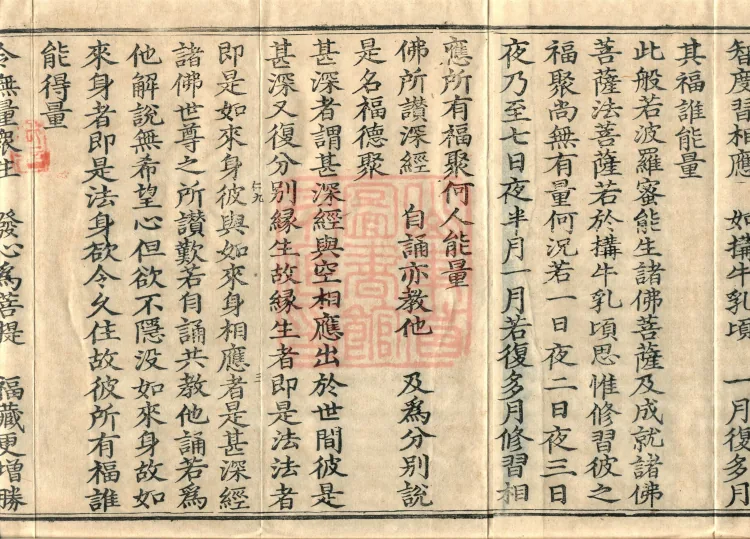 智度習相應 如搆牛乳頃 一月復多月
其福誰能量
此般若波羅蜜能生諸佛菩薩及成就諸佛
菩薩法菩薩若於搆牛乳頃思惟修習彼之
福聚尚無有量何況若一日夜二日夜三日
夜乃至七日夜半月一月若復多月修習相
應所有福聚何人能量
佛所讃深經 自誦亦教他 及為分別說
是名福德聚
甚深者謂甚深經與空相應出於世間彼是
甚深又復分別縁生故縁生者即是法法者
仁九
三
即是如來身彼與如來身相應者是甚深經
諸佛世尊之所讃歎若自誦共教他誦若為
他解說無希望心但欲不隱没如來身故如
來身者即是法身欲令久住故彼所有福誰
能得量
令無量衆生 發心為菩提 福藏更增勝